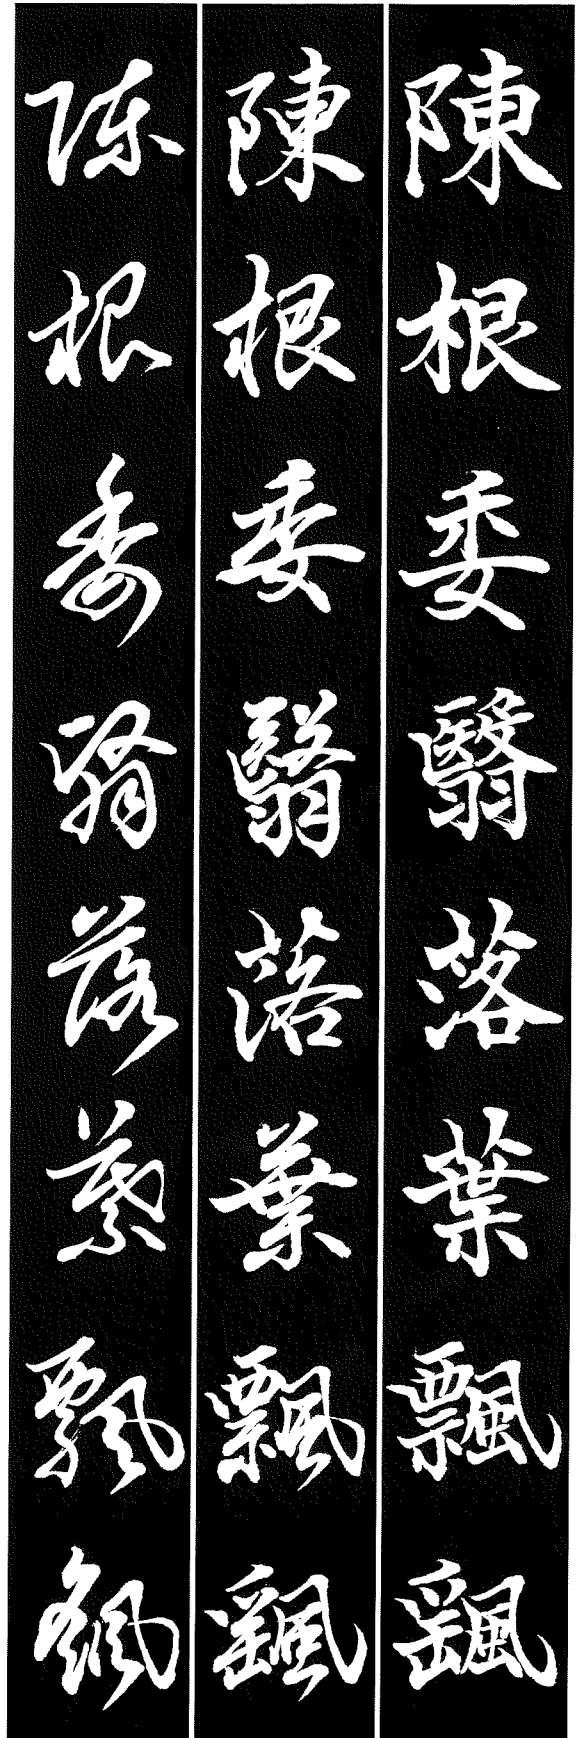 陳根委翳落葉飄颻
陳根委翳落葉飄颻
陳根委翳落葉飄颻